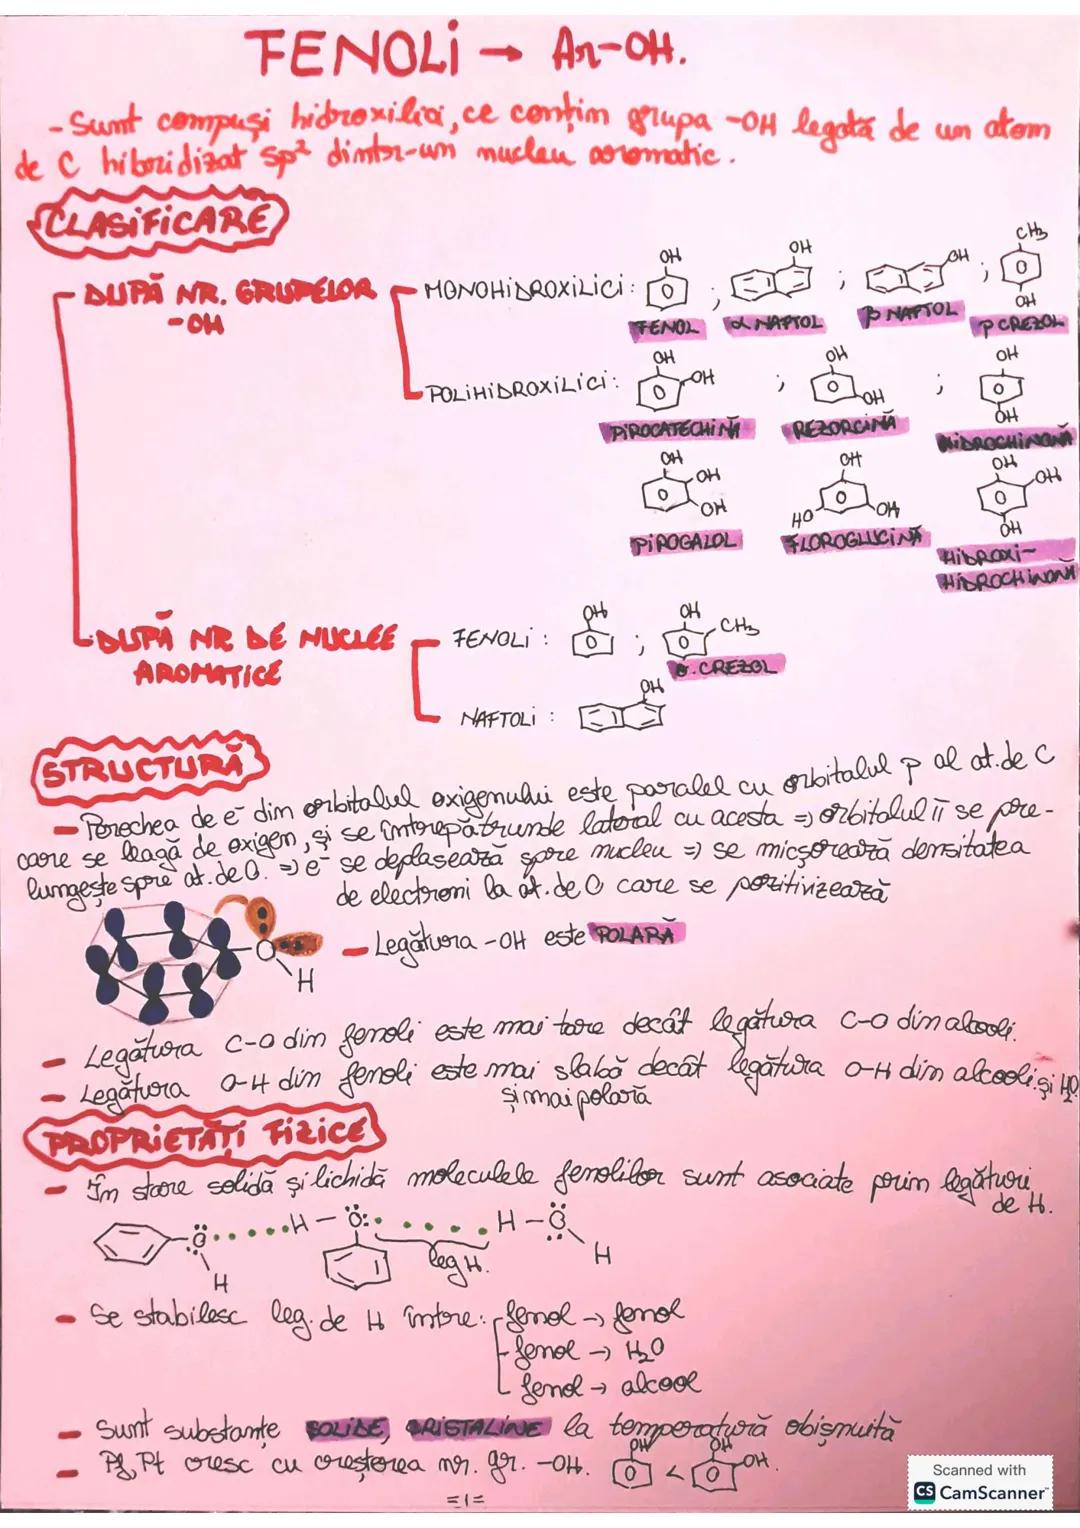 FENOLI → Ar-OH.
- Sunt compuși hidroxilici, ce conțin grupa -OH legată de un atom
de C hibridizat sp² dintr-un nucleu aromatic.
CLASIFICARE
DUPĂ NR. GRUPELOR
-OH
MONOHIDROXILICI: OH ; OH ; OH ; CH₃ OH
FENOL α NAFTOL β NAFTOL p CREZOL
POLIHIDROXILICI: OH OH ; OH OH ; OH OH
PIROCATECHINĂ REZORCINĂ HIDROCHINONĂ
OH OH OH OH HO OH OH OH OH
PIROGALOL FLOROGLUCINĂ HIDROXI-
HIDROCHINONĂ
DUPĂ NR DE NUCLEE
AROMATICE
FENOLI: OH ; OH CH₃
o. CREZOL
NAFTOLI: OH
STRUCTURĂ
- Perechea de e⁻ din orbitalul oxigenului este paralel cu orbitalul p al at. de C
care se leagă de oxigen, și se întrepătrunde lateral cu acesta => orbitalul π se pre-
lungește spre at. de O. => e⁻ se deplasează spre nucleu => se micșorează densitatea
de electroni la at. de O care se pozitivizează
O H
- Legătura -OH este POLARĂ
- Legătura C-O din fenoli este mai tare decât legătura C-O din alcooli.
- Legătura O-H din fenoli este mai slabă decât legătura O-H din alcooli și H₂O
și mai polară
PROPRIETĂȚI FIZICE
- În stare solidă și lichidă moleculele fenolilor sunt asociate prin legături
de H.
O H H - O H - O H
leg H.
- Se stabilesc leg. de H între: fenol → fenol
fenol → H₂O
fenol → alcool
- Sunt substanțe SOLIDE, CRISTALINE la temperatură obișnuită
- Pf, Pt cresc cu creșterea nr. gr. -OH. OH < OH OH.
=1=
Scanned with
CS CamScanner